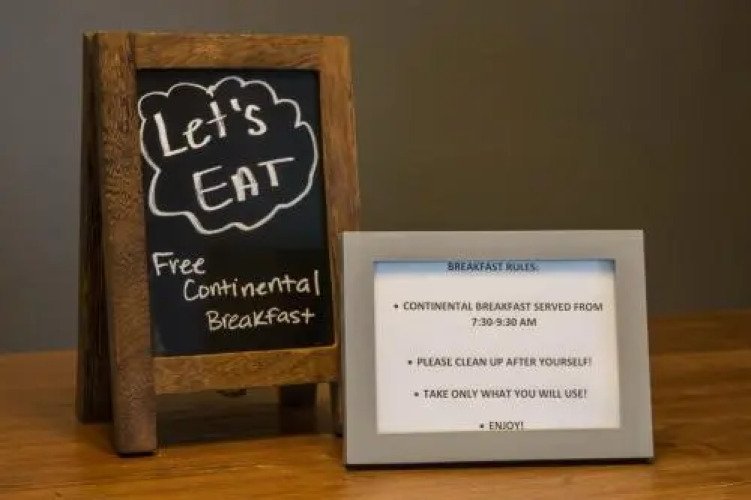 Let's
EAT
Free
Continental
Breakfast
BREAKFAST RULES:
• CONTINENTAL BREAKFAST SERVED FROM
7:30-9:30 AM
• PLEASE CLEAN UP AFTER YOURSELF!
• TAKE ONLY WHAT YOU WILL USE!
• ENJOY!